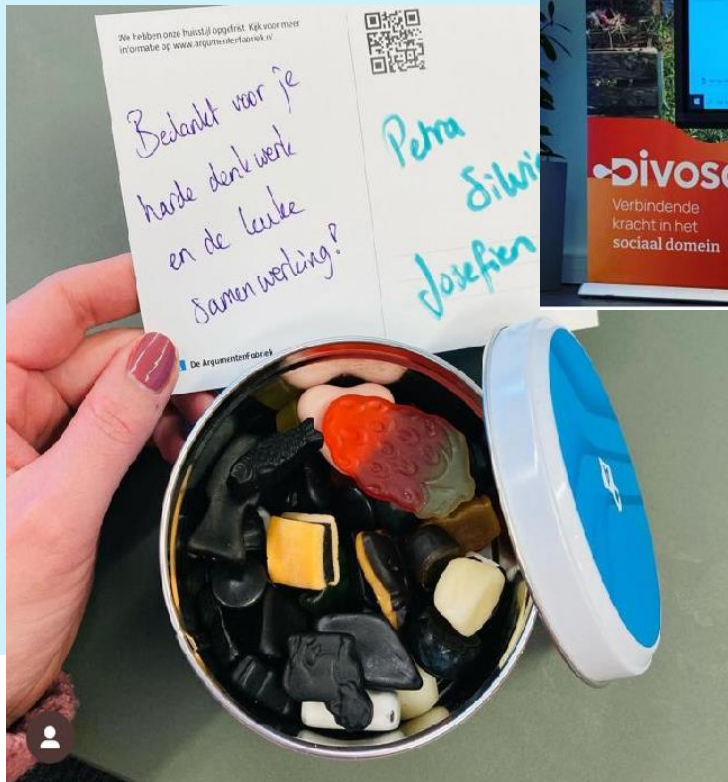 We hebben onze huisstijl opgefrist. Kijk voor meer
informatie op www.argumentenfabriek.nl
Bedankt voor je
harde denkwerk
en de leuke
samenwerking!
Petra
Silvie
Josefien
De Argumentenfabriek
Divosa
Verbindende
kracht in het
sociaal domein